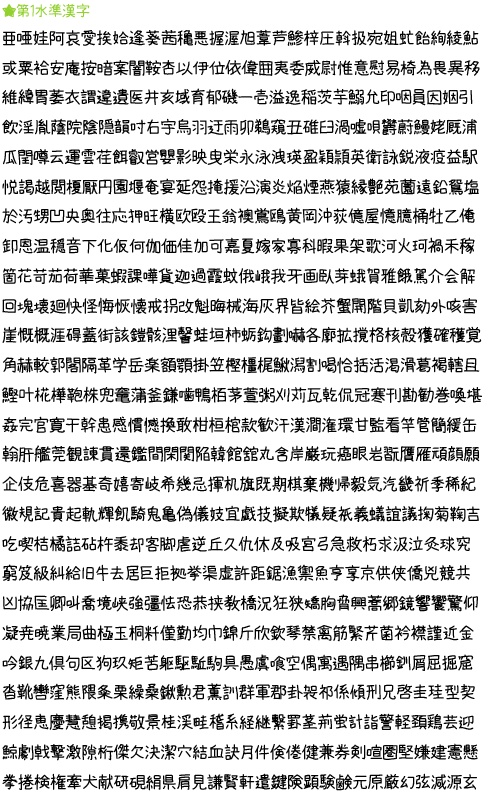 ★第1水準漢字
亜唖娃阿哀愛挨姶逢葵茜穐悪握渥旭葦芦鯵梓圧斡扱宛姐虻飴絢綾鮎
或粟袷安庵按暗案闇鞍杏以伊位依偉囲夷委威尉惟意慰易椅為畏異移
維緯胃萎衣謂違遺医井亥域育郁磯一壱溢逸稲茨芋鰯允印咽員因姻引
飲淫胤蔭院陰隠韻吋右宇烏羽迂雨卯鵜窺丑碓臼渦嘘唄欝蔚鰻姥厩浦
瓜閏噂云運雲荏餌叡営嬰影映曳栄永泳洩瑛盈穎頴英衛詠鋭液疫益駅
悦謁越閲榎厭円園堰奄宴延怨掩援沿演炎焔煙燕猿縁艶苑薗遠鉛鴛塩
於汚甥凹央奥往応押旺横欧殴王翁襖鴬鴎黄岡沖荻億屋憶臆桶牡乙俺
卸恩温穏音下化仮何伽価佳加可嘉夏嫁家寡科暇果架歌河火珂禍禾稼
箇花苛茄荷華菓蝦課嘩貨迦過霞蚊俄峨我牙画臥芽蛾賀雅餓駕介会解
回塊壊廻快怪悔恢懐戒拐改魁晦械海灰界皆絵芥蟹開階貝凱劾外咳害
崖慨概涯碍蓋街該鎧骸浬馨蛙垣柿蛎鈎劃嚇各廓拡撹格核殻獲確穫覚
角赫較郭閣隔革学岳楽額顎掛笠樫橿梶鰍潟割喝恰括活渇滑葛褐轄且
鰹叶椛樺鞄株兜竃蒲釜鎌噛鴨栢茅萱粥刈苅瓦乾侃冠寒刊勘勧巻喚堪
姦完官寛干幹患感慣憾換敢柑桓棺款歓汗漢澗潅環甘監看竿管簡緩缶
翰肝艦莞観諌貫還鑑間閑関陥韓館舘丸含岸巌玩癌眼岩翫贋雁頑顔願
企伎危喜器基奇嬉寄岐希幾忌揮机旗既期棋棄機帰毅気汽畿祈季稀紀
徽規記貴起軌輝飢騎鬼亀偽儀妓宜戯技擬欺犠疑祇義蟻誼議掬菊鞠吉
吃喫桔橘詰砧杵黍却客脚虐逆丘久仇休及吸宮弓急救朽求汲泣灸球究
窮笈級糾給旧牛去居巨拒拠挙渠虚許距鋸漁禦魚亨享京供侠僑兇競共
凶協匡卿叫喬境峡強彊怯恐恭挟教橋況狂狭矯胸脅興蕎郷鏡響饗驚仰
凝尭暁業局曲極玉桐粁僅勤均巾錦斤欣欽琴禁禽筋緊芹菌衿襟謹近金
吟銀九倶句区狗玖矩苦躯駆駈駒具愚虞喰空偶寓遇隅串櫛釧屑屈掘窟
沓靴轡窪熊隈粂栗繰桑鍬勲君薫訓群軍郡卦袈祁係傾刑兄啓圭珪型契
形径恵慶慧憩掲携敬景桂渓畦稽系経継繋罫茎荊蛍計詣警軽頚鶏芸迎
鯨劇戟撃激隙桁傑欠決潔穴結血訣月件倹倦健兼券剣喧圏堅嫌建憲懸
拳捲検権牽犬献研硯絹県肩見謙賢軒遣鍵険顕験鹸元原厳幻弦減源玄